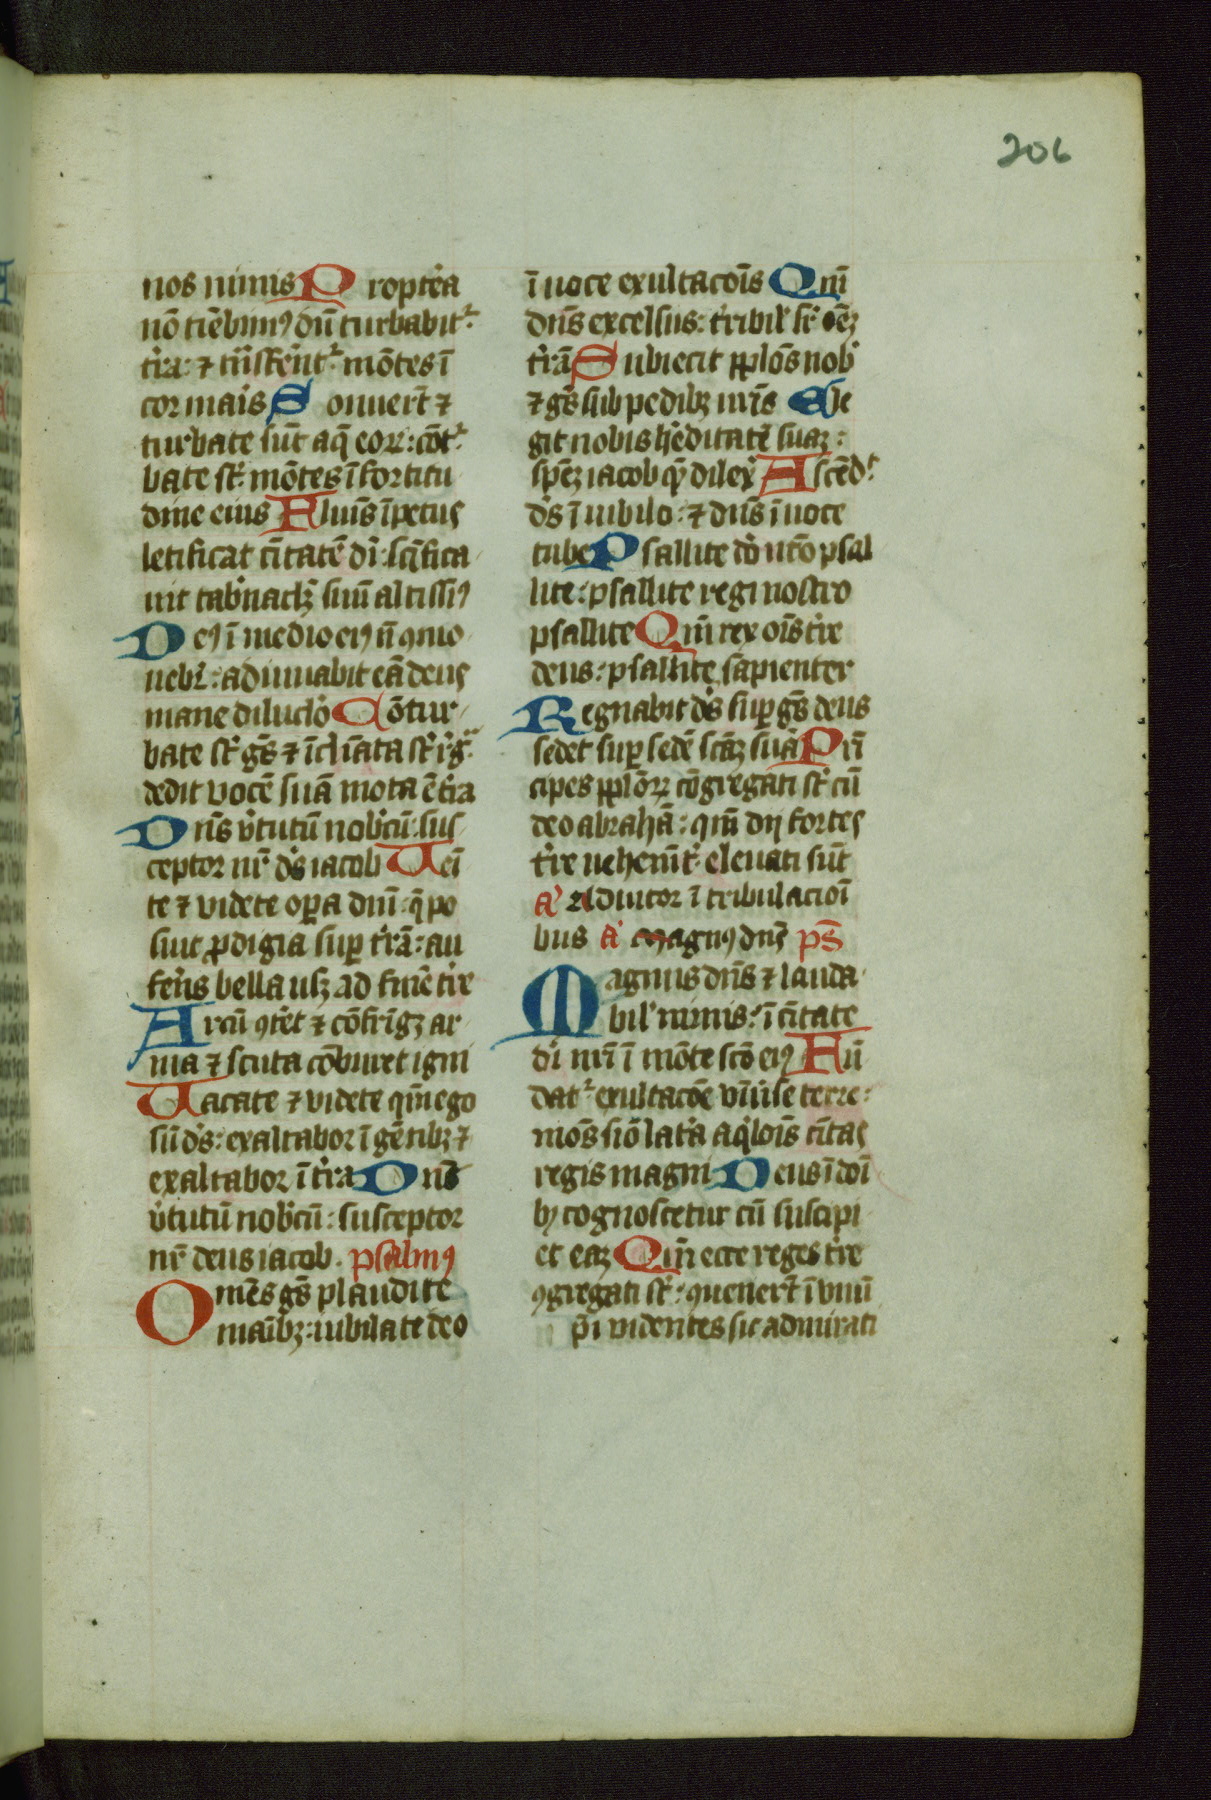 206
nos nimis Propt̾ea
nō tiēbim⁹ dū turbabit᷑
t̾ra: ⁊ tn̄sfer̄nt᷑ mōtes ī
cor maīs Sonuer̄t ⁊
turbate sūt aq̄ eoꝝ: cōt᷑
bate st̄ mōtes ī fortitu
dine eius Fluīs īpetus
letificat cīitatē dī: scīfica
uit tab̾naclꝫ suū altissi⁹
De⁹ ī medio ei⁹ nō ꝯmo
uebr̄: adiuuabit eā deus
mane diluclo Cōtur
bate st̄ gēs ⁊ īcliata st̄ rīg
dedit vocē suā mota ē t̾ra
Dn̄s v̾tutū nob̾cū: sus
ceptor nr̄ ds̄ iacob Uenī
te ⁊ videte opa dnī: q̄ po
suit ꝓdigia sup t̾rā: au
fer̄s bella usꝫ ad finē t̾re
Arcū ꝯt̾et ⁊ cōfrīgꝫ ar
ma ⁊ scuta cōburet igni
Uacate ⁊ videte qm̄ ego
sū ds̄: exaltabor ī gētibꝫ ⁊
exaltabor ī t̾ra Dn̄s
v̾tutū nob̾cū: susceptor
nr̄ deus iacob. psalm⁹
Omēs gēs plaudite
maībꝫ: iubilate deo
ī uoce exultacoīs Qm̄
dn̄s excelsus: t̾ribil̾ sr̄ oēꝫ
t̾rā Subiecit pplōs nob̾
⁊ gēs sub pedibꝫ nr̄is Ele
git nobis h̾editatē suaꝫ:
spēꝫ iacob qͣ dilex̾ Ascēd᷑
ds̄ ī iubilo: ⁊ dn̄s ī uoce
tube Psallite dō nr̄o psal
lite: psallite regi nostro
psallite Qm̄ rex oīs t̾re
deus: psallite sapienter
Regnabit ds̄ sup gēs deus
sedet sup sedē scāꝫ suā Prī
cipes pplōꝝ cōgregati st̄ cū
deo abrahā: qm̄ dij fortes
t̾re uehemt̾ eleuati sūt
a̾ Adiutor ī tribulacioī
bus a̾ Magn⁹ dn̄s ps̄
Magnus dn̄s ⁊ lauda
bil̾ nimis: ī cīitate
dī nr̄i ī mōte scō ei⁹ Fū
dat᷑ exultacōe vnīuse terre:
mōs siō lat̾a aq̄lōis cīitas
regis magni Deus ī doī
bꝫ cognoscetur cū suscipi
et eaꝫ Qm̄ ecce reges t̾re
ꝯgregati st̄: ꝯuener̄t ī vnū
pī videntes sic admirati